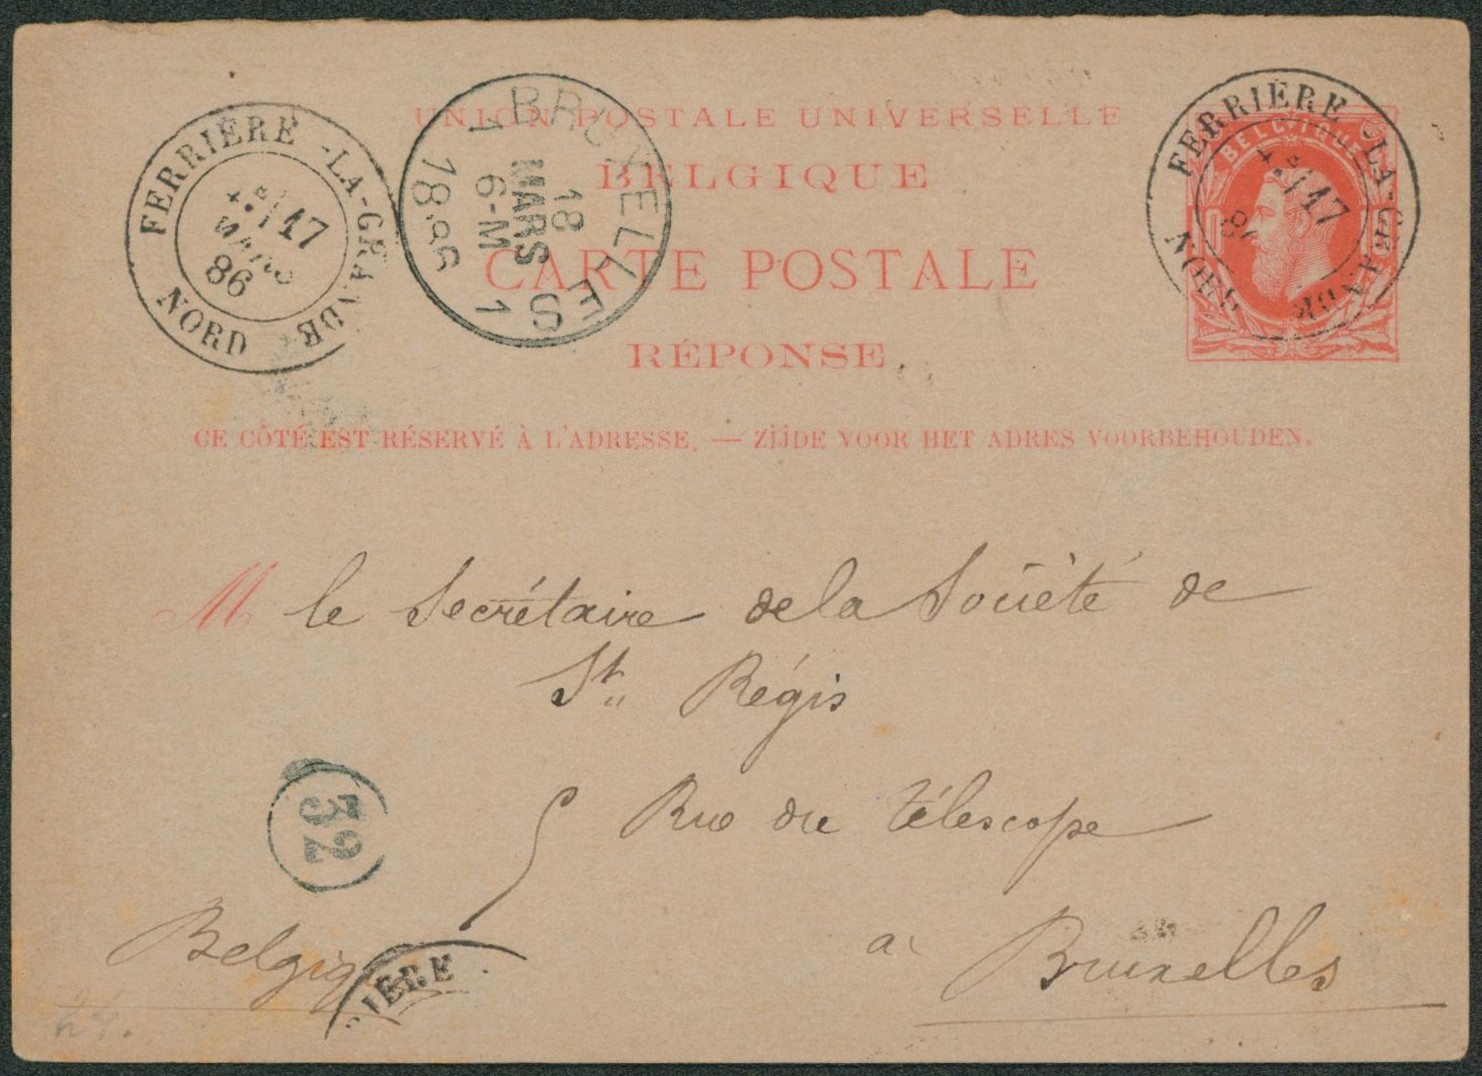 UNION POSTALE UNIVERSELLE
BELGIQUE
CARTE POSTALE
RÉPONSE.
CE CÔTÉ EST RÉSERVÉ À L'ADRESSE. — ZIJDE VOOR HET ADRES VOORBEHOUDEN.
FERRIÈRE-LA-GRANDE
17
MARS
86
NORD
BRUXELLES 1
18
MARS
6-M
1886
BELGIQUE
FERRIÈRE-LA-GRANDE
17
NORD
M le Secrétaire de la Société de
St Régis
5 Rue du Télescope
à Bruxelles
32
Belgique
IÈRE